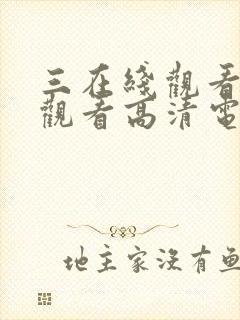 三在綫觀看
觀看高清電
地主家沒有魚